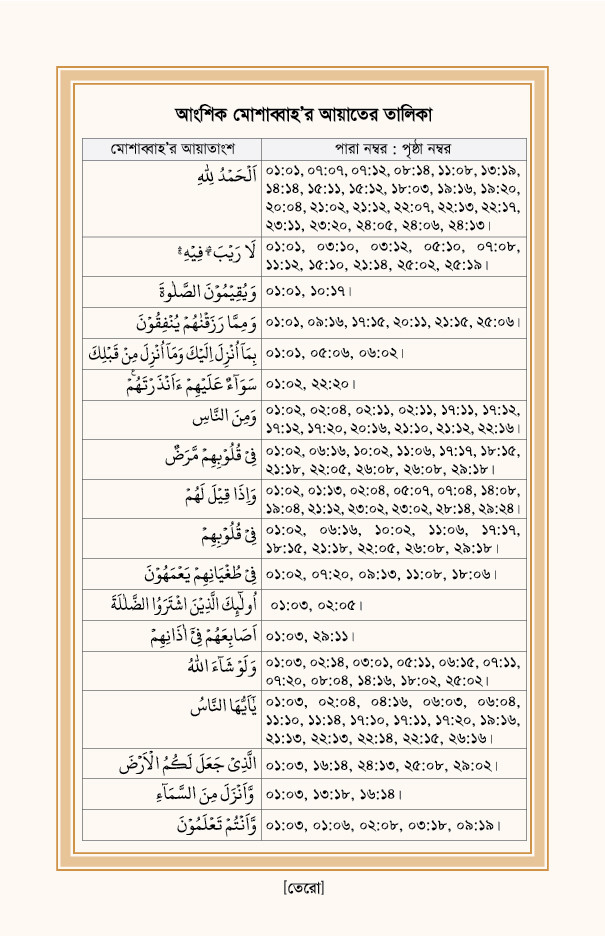 আংশিক মোশাব্বাহ’র আয়াতের তালিকা
মোশাব্বাহ’র আয়াতাংশ	পারা নম্বর : পৃষ্ঠা নম্বর
اَلْحَمْدُ لِلّٰهِ	০১:০১, ০৭:০৭, ০৭:১২, ০৮:১৪, ১১:০৮, ১৩:১৯,
১৪:১৪, ১৫:১১, ১৫:১২, ১৮:০৩, ১৯:১৬, ১৯:২০,
২০:০৪, ২১:০২, ২১:১২, ২২:০৭, ২২:১৩, ২২:১৭,
২৩:১১, ২৩:২০, ২৪:০৫, ২৪:০৬, ২৪:১৩।
لَا رَيْبَ ۛ فِيْهِ ۛ	০১:০১, ০৩:১০, ০৩:১২, ০৫:১০, ০৭:০৮,
১১:১২, ১৫:১০, ২১:১৪, ২৫:০২, ২৫:১৯।
وَيُقِيْمُوْنَ الصَّلٰوةَ	০১:০১, ১০:১৭।
وَمِمَّا رَزَقْنٰهُمْ يُنْفِقُوْنَ	০১:০১, ০৯:১৬, ১৭:১৫, ২০:১১, ২১:১৫, ২৫:০৬।
بِمَاۤ اُنْزِلَ اِلَيْكَ وَمَاۤ اُنْزِلَ مِنْ قَبْلِكَ	০১:০১, ০৫:০৬, ০৬:০২।
سَوَآءٌ عَلَيْهِمْ ءَاَنْذَرْتَهُمْ	০১:০২, ২২:২০।
وَمِنَ النَّاسِ	০১:০২, ০২:০৪, ০২:১১, ০২:১১, ১৭:১১, ১৭:১২,
১৭:১২, ১৭:২০, ২০:১৬, ২১:১০, ২১:১২, ২২:১৬।
فِىْ قُلُوْبِهِمْ مَّرَضٌ	০১:০২, ০৬:১৬, ১০:০২, ১১:০৬, ১৭:১৭, ১৮:১৫,
২১:১৮, ২২:০৫, ২৬:০৮, ২৬:০৮, ২৯:১৮।
وَاِذَا قِيْلَ لَهُمْ	০১:০২, ০১:১৩, ০২:০৪, ০৫:০৭, ০৭:০৪, ১৪:০৮,
১৯:০৪, ২১:১২, ২৩:০২, ২৩:০২, ২৮:১৪, ২৯:২৪।
فِىْ قُلُوْبِهِمْ	০১:০২, ০৬:১৬, ১০:০২, ১১:০৬, ১৭:১৭,
১৮:১৫, ২১:১৮, ২২:০৫, ২৬:০৮, ২৯:১৮।
فِىْ طُغْيَانِهِمْ يَعْمَهُوْنَ	০১:০২, ০৭:২০, ০৯:১৩, ১১:০৮, ১৮:০৬।
اُولٰٓئِكَ الَّذِيْنَ اشْتَرَوُا الضَّلٰلَةَ	০১:০৩, ০২:০৫।
اَصَابِعَهُمْ فِىْۤ اٰذَانِهِمْ	০১:০৩, ২৯:১১।
وَلَوْ شَآءَ اللّٰهُ	০১:০৩, ০২:১৪, ০৩:০১, ০৫:১১, ০৬:১৫, ০৭:১১,
০৭:২০, ০৮:০৪, ১৪:১৬, ১৮:০২, ২৫:০২।
يٰۤاَيُّهَا النَّاسُ	০১:০৩, ০২:০৪, ০৪:১৬, ০৬:০৩, ০৬:০৪,
১১:১০, ১১:১৪, ১৭:১০, ১৭:১১, ১৭:২০, ১৯:১৬,
২১:১৩, ২২:১৩, ২২:১৪, ২২:১৫, ২৬:১৬।
الَّذِىْ جَعَلَ لَكُمُ الْاَرْضَ	০১:০৩, ১৬:১৪, ২৪:১৩, ২৫:০৮, ২৯:০২।
وَّاَنْزَلَ مِنَ السَّمَآءِ	০১:০৩, ১৩:১৮, ১৬:১৪।
وَّاَنْتُمْ تَعْلَمُوْنَ	০১:০৩, ০১:০৬, ০২:০৮, ০৩:১৮, ০৯:১৯।
[তেরো]